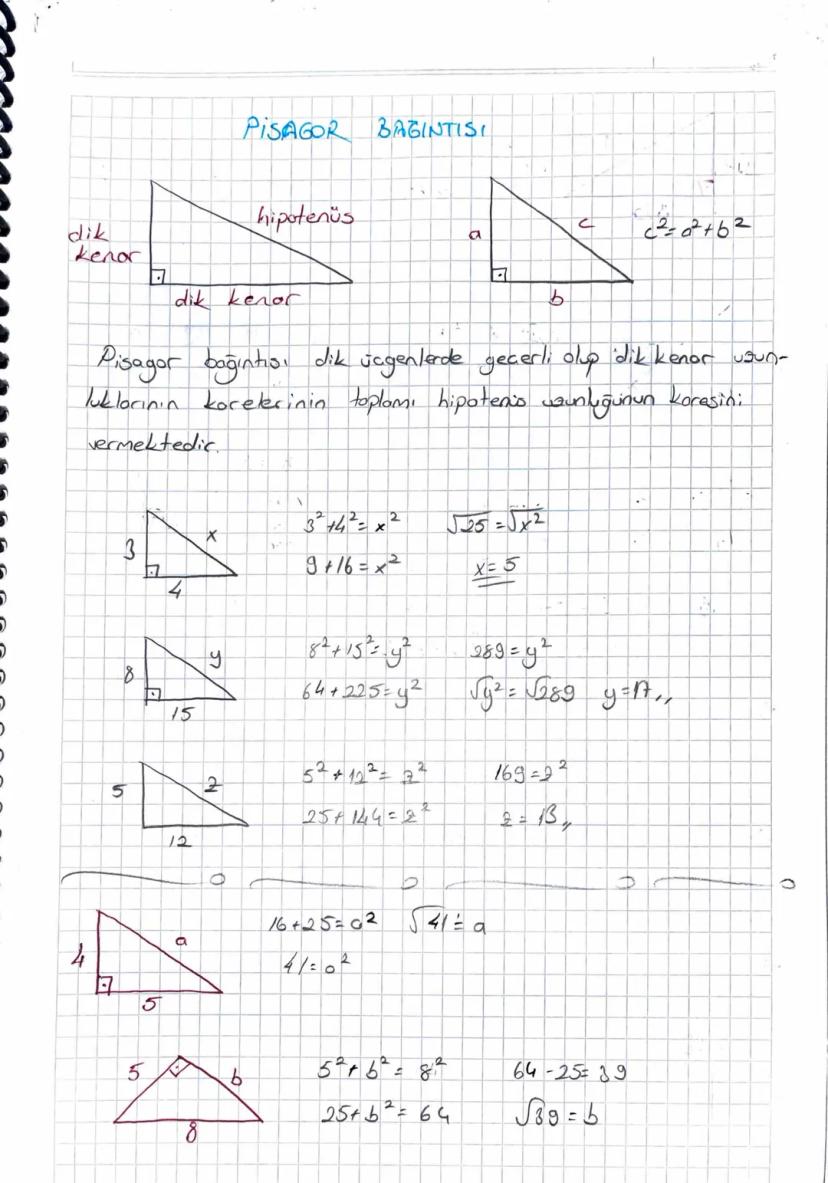 PİSAGOR BAĞINTISI
dik kenar
hipotenüs
dik kenar
a
c
b
c² = a² + b²
Pisagor bağıntısı dik üçgenlerde geçerli olup dik kenar uzun-
luklarının karelerinin toplamı hipotenüs uzunluğunun karesini
vermektedir.
3
x
4
3² + 4² = x²
√25 = √x²
9 + 16 = x²
x = 5
8
y
15
8² + 15² = y²
289 = y²
64 + 225 = y²
√y² = √289 y = 17,,
5
z
12
5² + 12² = z²
169 = z²
25 + 144 = z²
z = 13,,
4
a
5
16 + 25 = a²
√41 = a
41 = a²
5
b
8
5² + b² = 8²
64 - 25 = 39
25 + b² = 64
√39 = b